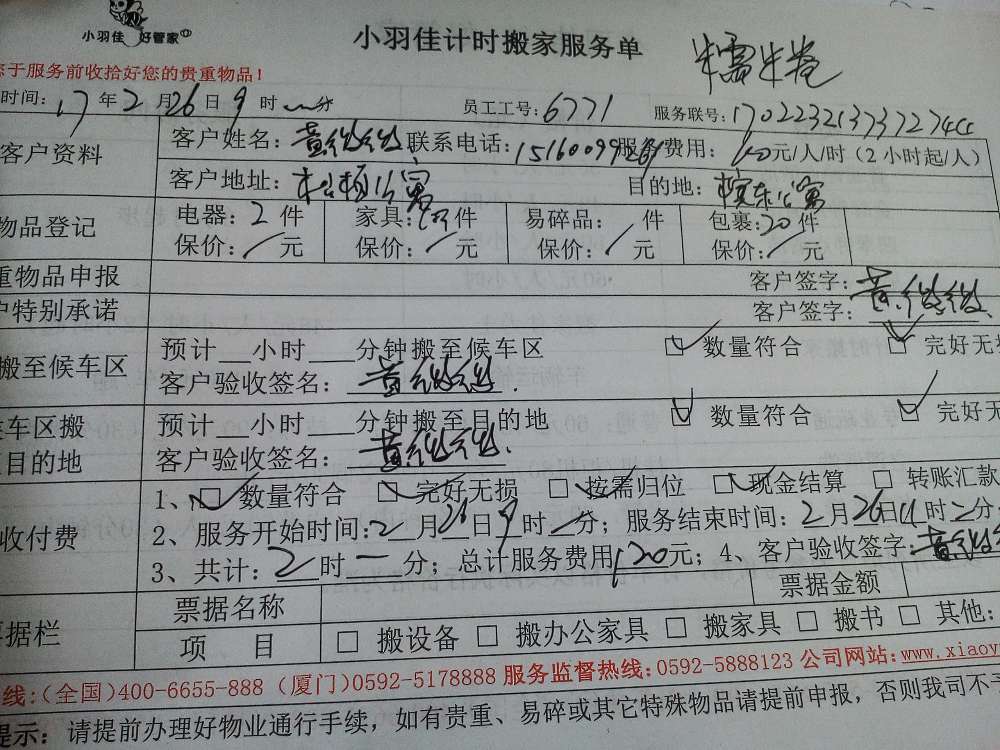 小羽佳 好管家
小羽佳计时搬家服务单
您于服务前收拾好您的贵重物品！
时间：17年2月26日9时 分 员工工号：6771 服务联号：
客户资料
客户姓名：黄 联系电话： 服务费用：60元/人/时（2小时起/人）
客户地址： 公寓 目的地： 公寓
物品登记
电器：2件 家具： 件 易碎品： 件 包裹：20件
保价：/元 保价：/元 保价：/元 保价：/元
重物品申报 客户签字：黄
户特别承诺 客户签字：
搬至候车区
预计__小时___分钟搬至候车区 ☑数量符合 ☑完好无
客户验收签名：黄
车区搬
目的地
预计__小时___分钟搬至目的地 ☑数量符合 ☑完好无
客户验收签名：黄
收付费
1、☑数量符合 ☑完好无损 ☑按需归位 ☑现金结算 □转账汇款
2、服务开始时间：2月26日9时 分；服务结束时间：2月26日11时 分；
3、共计：2时 分；总计服务费用120元；4、客户验收签字：黄
票据栏
票据名称 票据金额
项 目 □搬设备 □搬办公家具 □搬家具 □搬书 □其他：
线：(全国)400-6655-888 (厦门)0592-5178888 服务监督热线：0592-5888123 公司网站：www.xiaoy
提示：请提前办理好物业通行手续，如有贵重、易碎或其它特殊物品请提前申报，否则我司不予